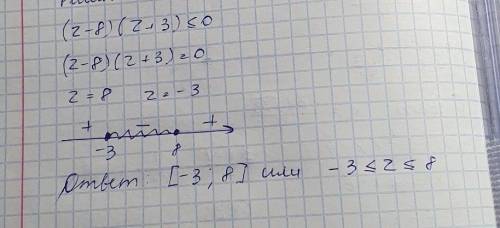 (z-8)(z+3)≤0
(z-8)(z+3)=0
z=8 z=-3
+ - +
-3 8
Ответ: [-3; 8] или -3≤z≤8